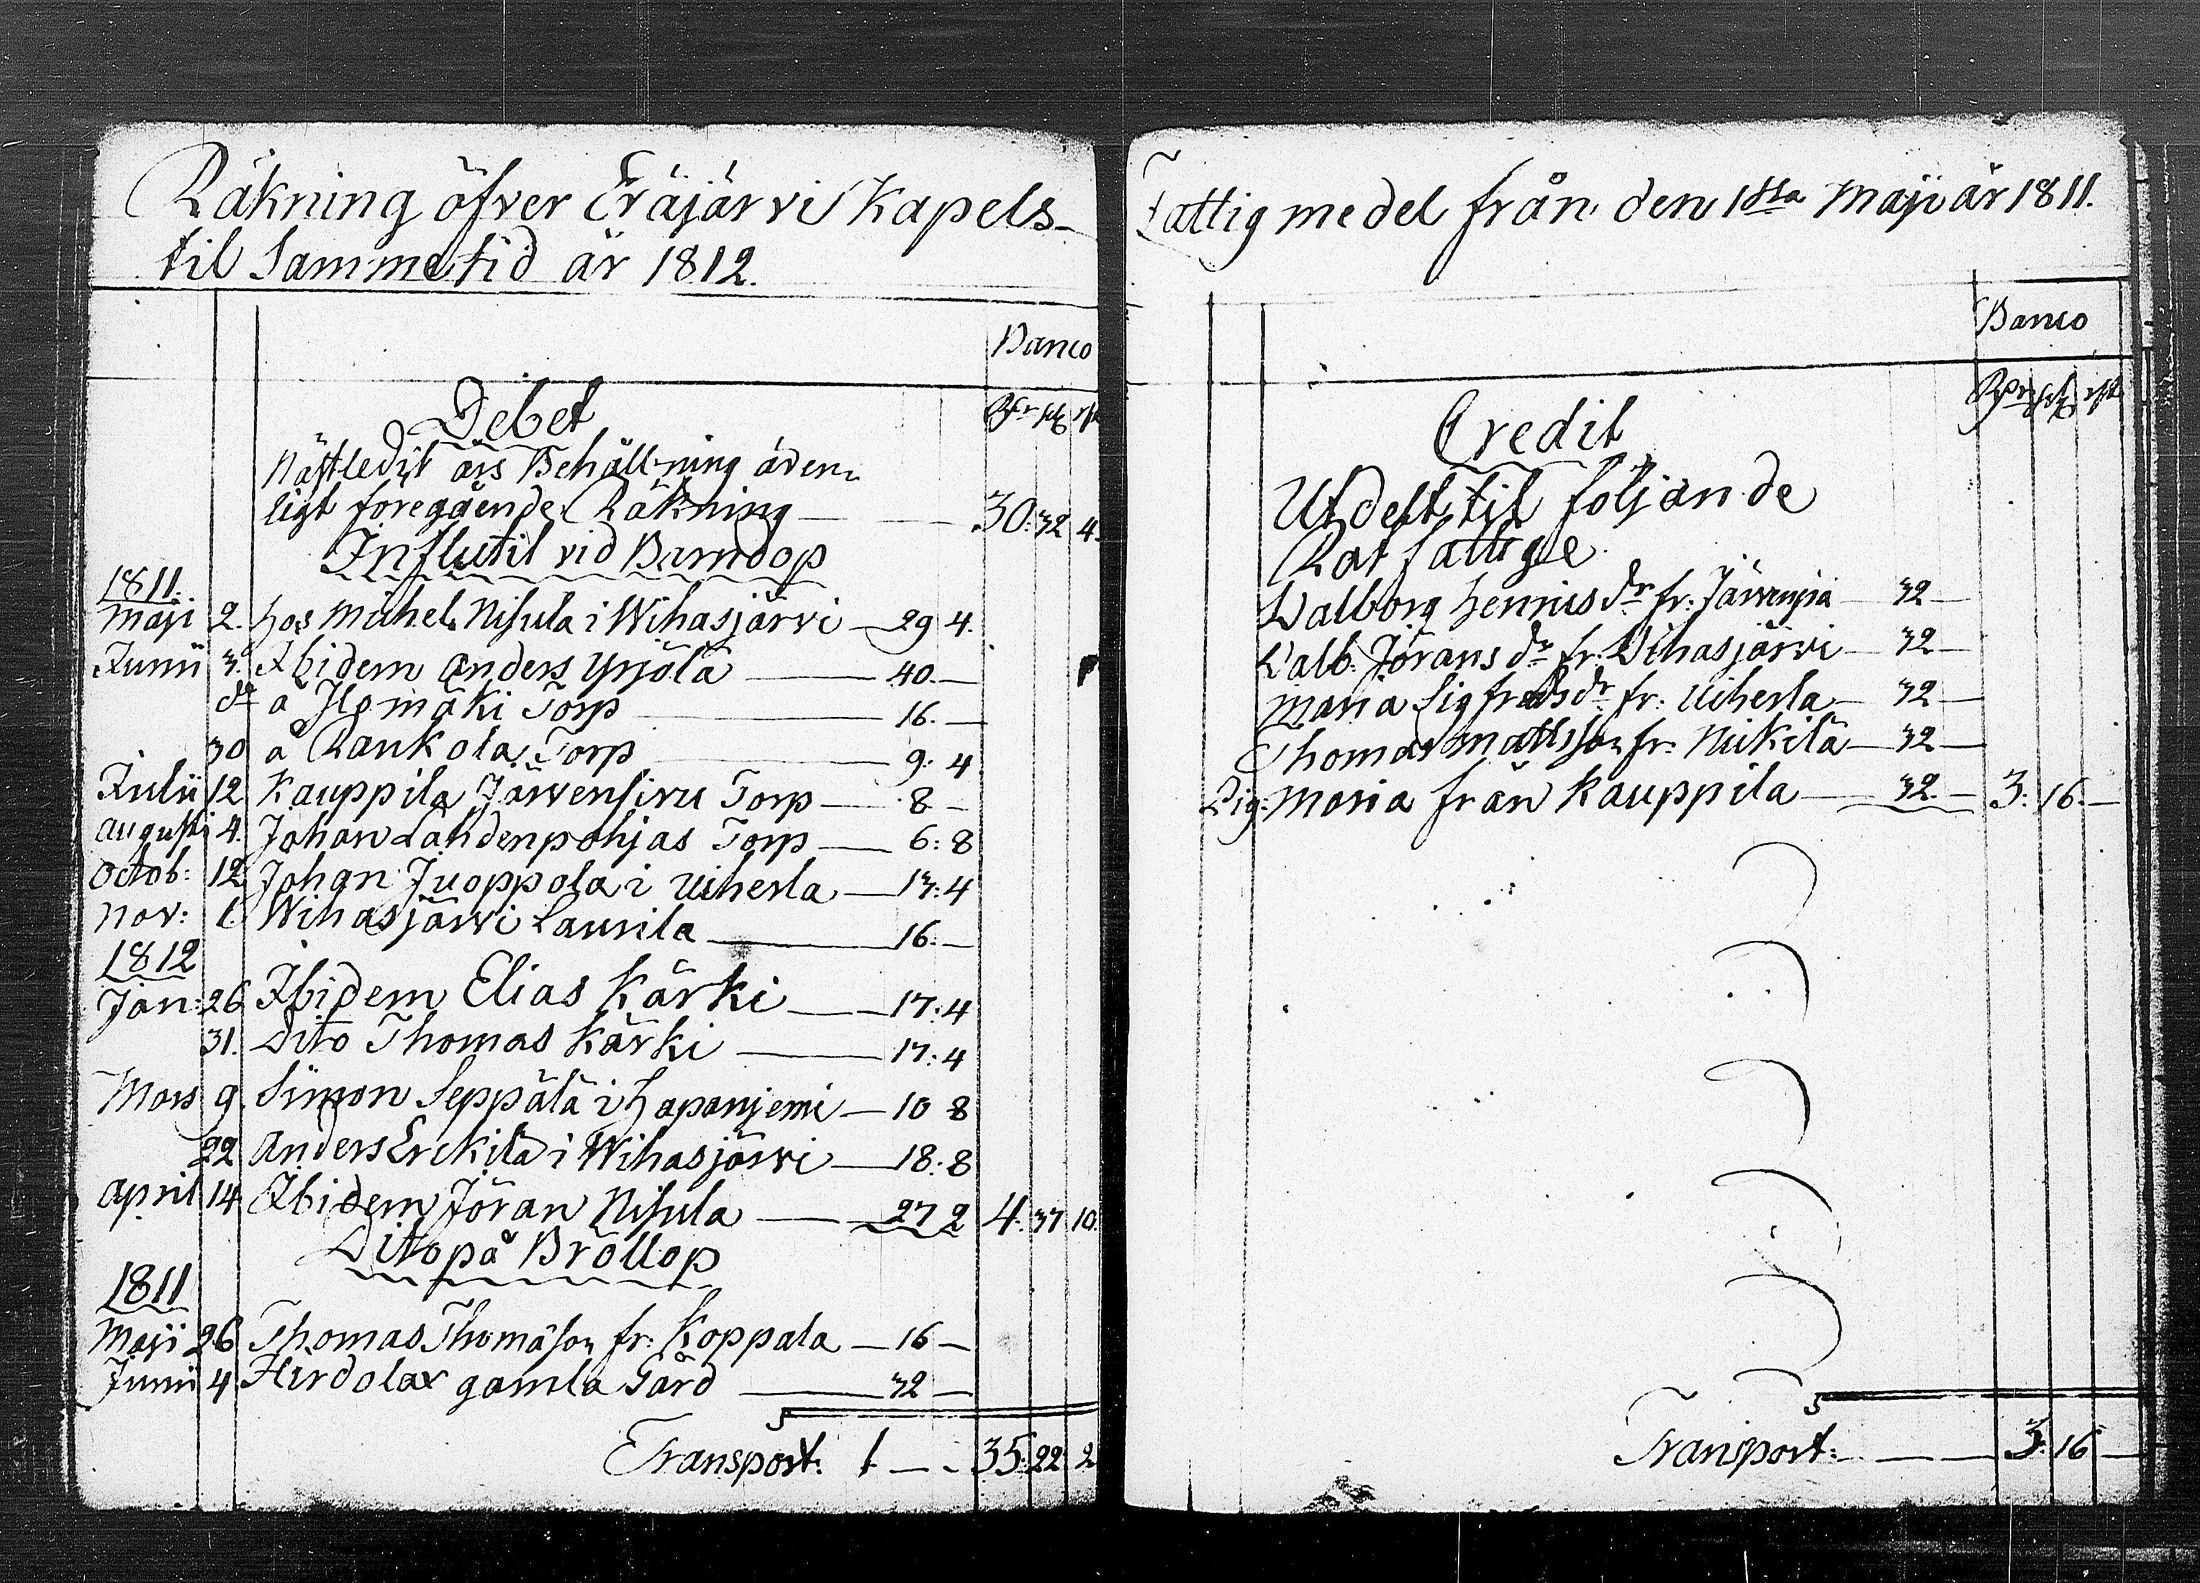 Räkning öfver Eräjärvi Kapels
til Samma tid år 1812.
Banco
Debet
Rdr sk rst
Nästledit års Behållning även
ligt föregående Räkning 30: 32 4.
Influtit vid Barndop
1811.
Maji 2. hos Michel Nisula i Wihasjärvi 29 4.
Junii 3. Ibidem Anders Yrjölä 40.
do å Ilomäki Torp 16.
30 å Rankola Torp 9: 4
Julii 12 Kauppila Järvensivu Torp 8
Augusti 4. Johan Lahdenpohjas Torp 6: 8
Octob: 12 Johan Juoppola i Uiherla 13: 4
Nov: 6 Wihasjärvi Laurila 16:
1812
Jan: 26 Ibidem Elias Kärki 17: 4
31. Dito Thomas Kärki 17: 4
Mars 9. Simon Seppälä i Hapanjemi 10 8
22 Anders Erckilä i Wihasjärvi 18: 8
April 14 Ibidem Jöran Nisula 27 2 4: 37 10.
Dito på Bröllop
1811
Maji 26 Thomas Thomasson fr: Koppala 16
Junii 4 Hirdolax gamla Gård 32
Transport: 1 35: 22 2
Fattig medel från den 1sta Maji år 1811.
Banco
Rdr sk rst
Credit
Utdelt til följande
Rotfattige
Walborg Henricsdr fr: Järvenpä 32
Valb: Jöransdr fr: Wihasjärvi 32
Maria Sigfredsdr fr: Uiherla 32
Thomas Mattsson fr: Nikilä 32
Pig: Maria från Kauppila 32. 3: 16.
Transport: 3: 16